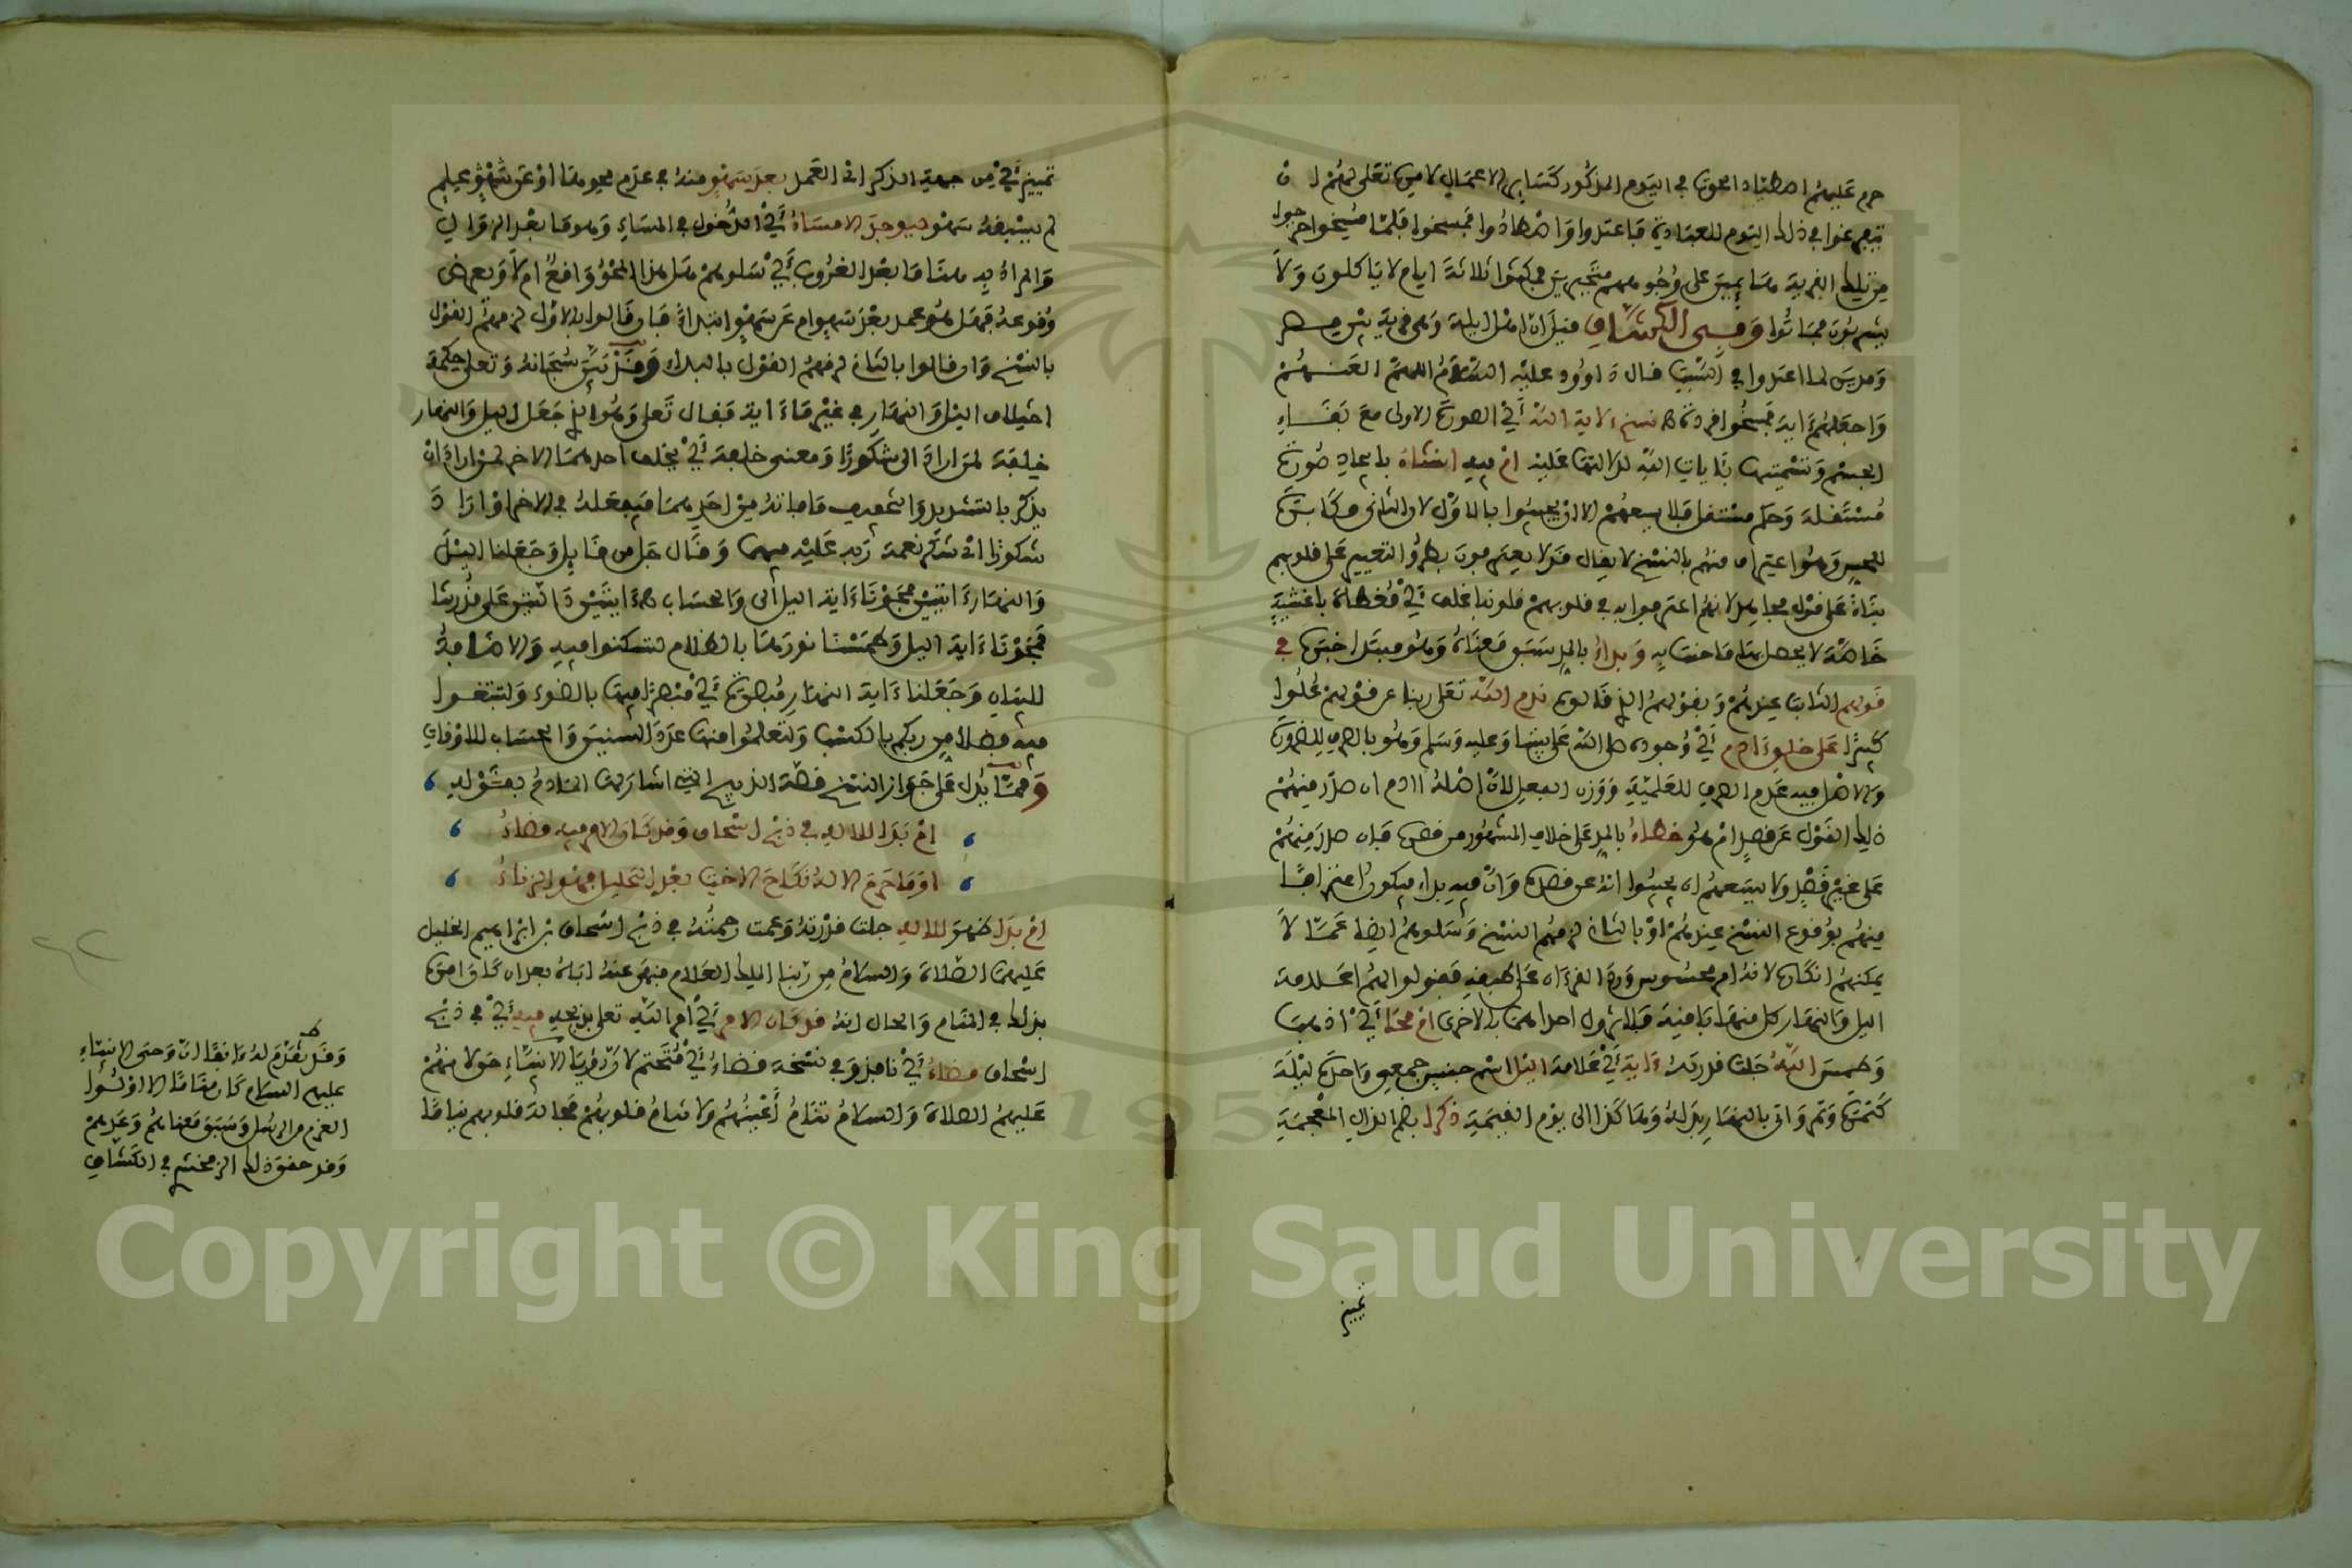 حرم عليهم اصطياد الحوت في اليوم المذكور كسائر الاعمال لامره تعلى لهم ان
يتفرغوا في ذلك اليوم للعبادة فاعتدوا واصطادوا فمسخوا فلما مسخوا خرجوا
من تلك القرية هائمين على وجوههم متحيرين فمكثوا ثلاثة ايام لا ياكلون ولا
يشربون فماتوا وفي الكشاف قيل ان اهل ايلة وهي قرية بين مصر
ومدين لما اعتدوا في السبت قال داوود عليه السلام اللهم العنهم
واجعلهم ءاية فمسخوا قردة نسخ لاية الله أي الصورة الاولى مع بقاء
الجسم وتسميتها بآيات الله لدلالتها عليه ام فيه انشاء بايجاد صورة
مستقلة وحكم مستقل فلا يسعهم الا ان يجيبوا بالاول لان الثاني مكابرة
للحس وهو اعتراف منهم بالنسخ لا يقال قد لا يعترفون بطرو التغيير على قلوبهم
بناء على قول مجاهد لانهم اعترفوا به في قلوبهم قلوبنا غلف أي مغطاة باغشية
خاصة لا يصل لها ما جئت به وبداء بالمد سبق معناه وهو مبتدا خبره في
قولهم الثابت عندهم وبقولهم الذي قالوه ندم الله تعلى ربنا عن قولهم علوا
كبيرا على خلق ءادم أي وجوده صلى الله على نبينا وعليه وسلم وهو بالصرف للضرورة
والاصل فيه عدم الصرف للعلمية ووزن الفعل لان اصله اادم ان صدر منهم
ذلك القول عن قصد ام هو خطاء بالمد على خلاف المشهور من قصره فان صدر منهم
على غير قصد ولا يسعهم ان يجيبوا انه عن قصد وان فيه بداء فيكون اعترافا
منهم بوقوع النسخ عندهم او بالثاني لزمهم النسخ وسلوهم ايضا عما لا
يمكنهم انكاره لانه امر محسوس ورد القرءان على طبقه فقولوا لهم اعلامة
اليل والنهار كل منهما باقية فلا تزول احداهما بالاخرى ام محا أي اذهب
وطمس الله جلت قدرته ءاية أي علامة اليل اسم جنس جمعي واحده ليلة
كتمرة وتمر واتى بالنهار بدله وهاكذا الى يوم القيمة ذكرا بضم الذال المعجمة
تمييز
تمييز أي من جهة الذكر ام العمل بعد سهو منه في عدم محوهما او عن سهو علم
لم يسبقه سهو فيوجد الامساء أي الدخول في المساء وهو ما بعد الزوال
والمراد به هنا ما بعد الغروب أي سلوهم هل هذا المحو واقع ام لا وبعرض
وقوعه فهل هو عمد بعد سهو ام عن سهو ابتداء فان قالوا بالاول لزمهم القول
بالنسخ وان قالوا بالثاني لزمهم القول بالبداء وقد بين سبحانه وتعلى حكمة
اختلاف اليل والنهار في غير ما ءاية فقال تعلى وهو الذي جعل اليل والنهار
خلفة لمن اراد الى شكورا ومعنى خلفة أي يخلف احدهما الاخر لمن اراد ان
يذكر بالتشديد والتخفيف ما فاته من احدهما فيفعله في الاخر او اراد
شكورا أي شكر نعمة ربه عليه فيهما وقال جل من قايل وجعلنا اليل
والنهار ءايتين فمحونا ءاية اليل أي والحساب ءايتين دالتين على قدرتنا
فمحونا ءاية اليل وطمسنا نورها بالظلام لتسكنوا فيه والاضافة
للبيان وجعلنا ءاية النهار مبصرة أي مبصرا فيها بالضوء ولتبتغوا
فيه فضلا من ربكم بالكسب ولتعلموا منها عدد السنين والحساب للاوقات
ومما يدل على جواز النسخ قصة الذبيح التي اشار لها الناظم بقوله
ام بدا للاله في ذبح اسحاق وقد كان الامر فيه مضاء
او ما حرم الاله نكاح الاخت بعد التحليل فهو الزناء
ام بدا ظهر للاله جلت قدرته وعمت رحمته في ذبح اسحاق بن ابراهيم الخليل
عليهما الصلاة والسلام من ربنا الملك العلام فنهى عنه اباه بعد ان كان امره
بذلك في المنام والحال انه قد كان الامر أي امر الله تعلى بذبحه فيه أي في ذبح
اسحاق مضاء أي نافذ وفي نسخة قضاء أي محتم لان رؤيا الانبياء حق لانهم
عليهم الصلاة والسلام تنام أعينهم ولا تنام قلوبهم فحالة قلوبهم نياما
وقد تقدم له ءانفا ان وحي الانبياء
عليهم السلام كان مناما الا اولوا
العزم من الرسل وسبق معناهم وعدهم
وقد حقق ذلك الزمخشري في الكشاف
Copyright © King Saud University
1957